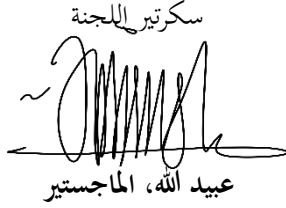 سكرتير اللجنة
عبيد الله، الماجستير